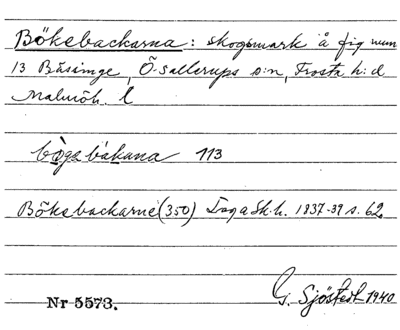 Bökebackarna: skogsmark å fig num
13 Båsinge, Ö. Sallerups s:n, Frosta h:d
Malmöh. l
bògebákana 113
Bökebackarne (350) Laga Sk.h. 1837-39 s. 62.
Nr 5573.
G. Sjöstedt 1940